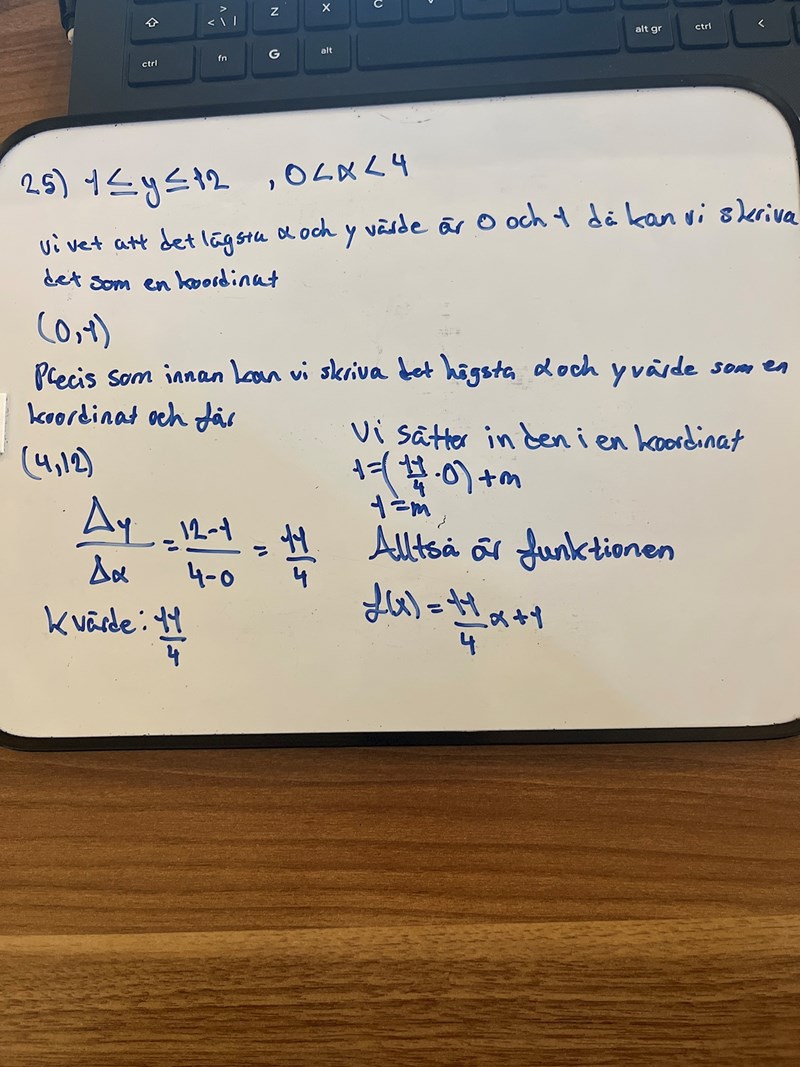 > Z X C
< \ |
ctrl fn G alt alt gr ctrl <
25) 1 ≤ y ≤ 12 , 0 < x < 4
vi vet att det lägsta x och y värde är 0 och 1 då kan vi skriva
det som en koordinat
(0,1)
Precis som innan kan vi skriva det högsta x och y värde som en
koordinat och får
(4,12)
Δy/Δx = 12-1/4-0 = 11/4
k värde: 11/4
Vi sätter in den i en koordinat
1=(11/4 · 0)+m
1=m
Alltså är funktionen
f(x) = 11/4 x+1